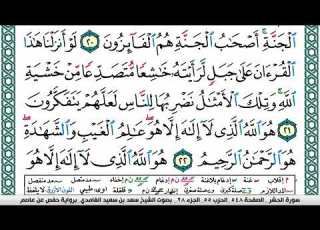 ٱلْجَنَّةِ ۚ أَصْحَٰبُ ٱلْجَنَّةِ هُمُ ٱلْفَآئِزُونَ ٢٠ لَوْ أَنزَلْنَا هَٰذَا
ٱلْقُرْءَانَ عَلَىٰ جَبَلٍ لَّرَأَيْتَهُۥ خَٰشِعًا مُّتَصَدِّعًا مِّنْ خَشْيَةِ
ٱللَّهِ ۚ وَتِلْكَ ٱلْأَمْثَٰلُ نَضْرِبُهَا لِلنَّاسِ لَعَلَّهُمْ يَتَفَكَّرُونَ
٢١ هُوَ ٱللَّهُ ٱلَّذِى لَآ إِلَٰهَ إِلَّا هُوَ ۖ عَٰلِمُ ٱلْغَيْبِ وَٱلشَّهَٰدَةِ ۖ
هُوَ ٱلرَّحْمَٰنُ ٱلرَّحِيمُ ٢٢ هُوَ ٱللَّهُ ٱلَّذِى لَآ إِلَٰهَ إِلَّا هُوَ
سورة الحشر . الصفحة ٥٤٨ . الحزب ٥٥ . الجزء ٢٨ . بصوت الشيخ سعد بن سعيد الغامدي . برواية حفص عن عاصم